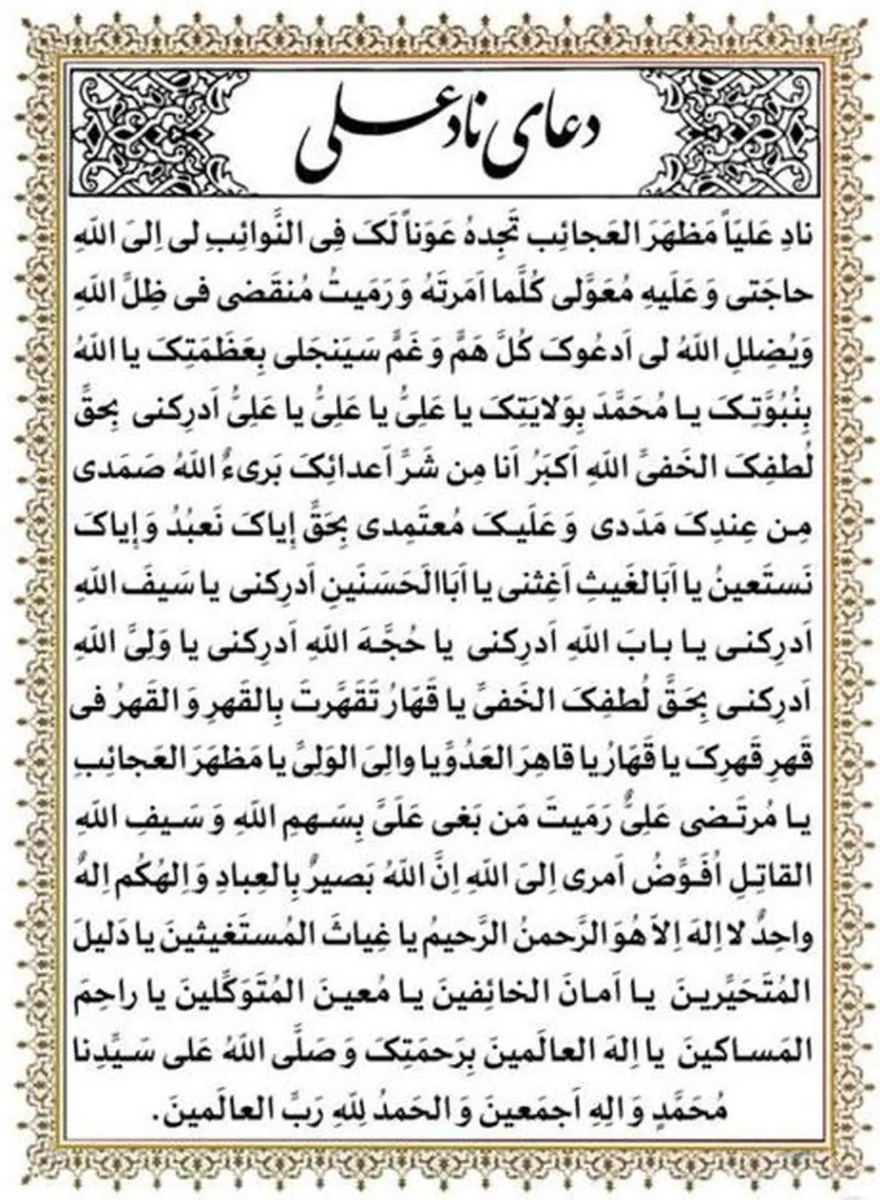 دعای ناد علی
نادِ عَلیَاً مَظهَرَ العَجائِب تَجِدهُ عَوَناً لَکَ فِی النَّوائِبِ لی اِلیَ اللهِ
حاجَتی وَ عَلَیهِ مُعَوَّلی کُلَّما اَمَرتَهُ وَ رَمَیتُ مُنقَضی فی ظِلِّ اللهِ
وَیُضِلِلِ اللهُ لی اَدعُوکَ کُلَّ هَمٍّ وَ غَمٍّ سَیَنجَلی بِعَظَمَتِکَ یا اللهُ
بِنُبُوَّتِکَ یا مُحَمَّدَ بِوَلایَتِکَ یا عَلِیُّ یا عَلِیُّ یا عَلِیُّ اَدرِکنی بِحَقِّ
لُطفِکَ الخَفیِّ اللهِ اَکبَرُ اَنا مِن شَرِّ اَعدائِکَ بَریءٌ اللهُ صَمَدی
مِن عِندِکَ مَدَدی وَ عَلَیکَ مُعتَمِدی بِحَقِّ إیاکَ نَعبُدُ وَ إیاکَ
نَستَعینُ یا اَبَالغَیثِ اَغِثنی یا اَبَاالَحَسَنَینِ اَدرِکنی یا سَیفَ اللهِ
اَدرِکنی یا بابَ اللهِ اَدرِکنی یا حُجَّهَ اللهِ اَدرِکنی یا وَلِیَّ اللهِ
اَدرِکنی بِحَقِّ لُطفِکَ الخَفیِّ یا قَهّارُ تَقَهَّرتَ بِالقَهرِ وَ القَهرُ فی
قَهرِ قَهرِکَ یا قَهّارُ یا قاهِرَ العَدُوِّیا والِیَ الوَلِیِّ یا مَظهَرَ العَجائِبِ
یا مُرتَضی عَلِیٌّ رَمَیتَ مَن بَغی عَلَیَّ بِسَهمِ اللهِ وَ سَیفِ اللهِ
القاتِلِ اُفَوِّضُ اَمری اِلیَ اللهِ اِنَّ اللهُ بَصیرٌ بِالعِبادِ وَ اِلهُکُم اِلهٌ
واحِدٌ لا اِلهَ اِلاّ هُوَ الرَّحمنُ الرَّحیمُ یا غِیاثَ المُستَغیثینَ یا دَلیلَ
المُتَحَیِّرینَ یا اَمانَ الخائِفینَ یا مُعینَ المُتَوَکِّلینَ یا راحِمَ
المَساکینَ یا اِلهَ العالَمینَ بِرَحمَتِکَ وَ صَلَّی اللهُ عَلی سَیِّدِنا
مُحَمَّدٍ وَ الِهِ اَجمَعینَ وَ الحَمدُ لِلّهِ رَبِّ العالَمینَ.